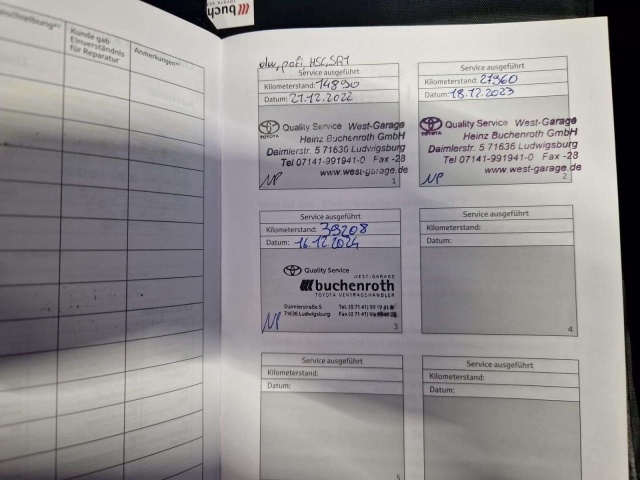 buch
Kunde gab
Einverständnis
für Reparatur
Anmerkungen
HSC, SRT
Service ausgeführt
Kilometerstand: 14890
Datum: 21.12.2022
TOYOTA
Quality Service West-Garage
Heinz Buchenroth GmbH
Daimlerstr. 5 71636 Ludwigsburg
Tel 07141-991941-0 Fax -28
www.west-garage.de
NP
1
Service ausgeführt
Kilometerstand: 27960
Datum: 18.12.2023
TOYOTA
Quality Service West-Garage
Heinz Buchenroth GmbH
Daimlerstr. 5 71636 Ludwigsburg
Tel 07141-991941-0 Fax -28
www.west-garage.de
NP
2
Service ausgeführt
Kilometerstand: 39208
Datum: 16.12.2024
Quality Service
WEST-GARAGE
buchenroth
TOYOTA VERTRAGSHÄNDLER
Daimlerstraße 5 Tel. (0 71 41)
71636 Ludwigsburg Fax (0 71 41)
NP
3
Service ausgeführt
Kilometerstand:
Datum:
4
Service ausgeführt
Kilometerstand:
Datum:
5
Service ausgeführt
Kilometerstand:
Datum: